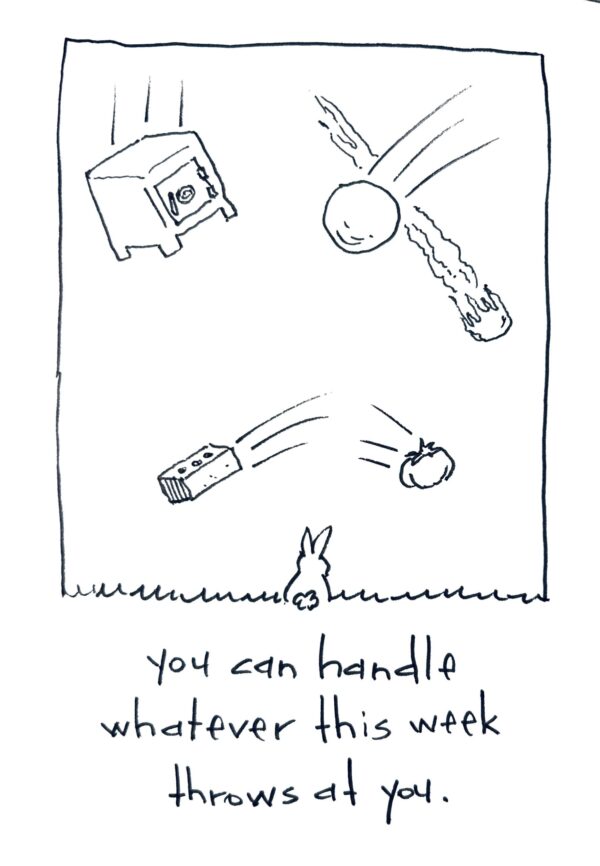 you can handle
whatever this week
throws at you.